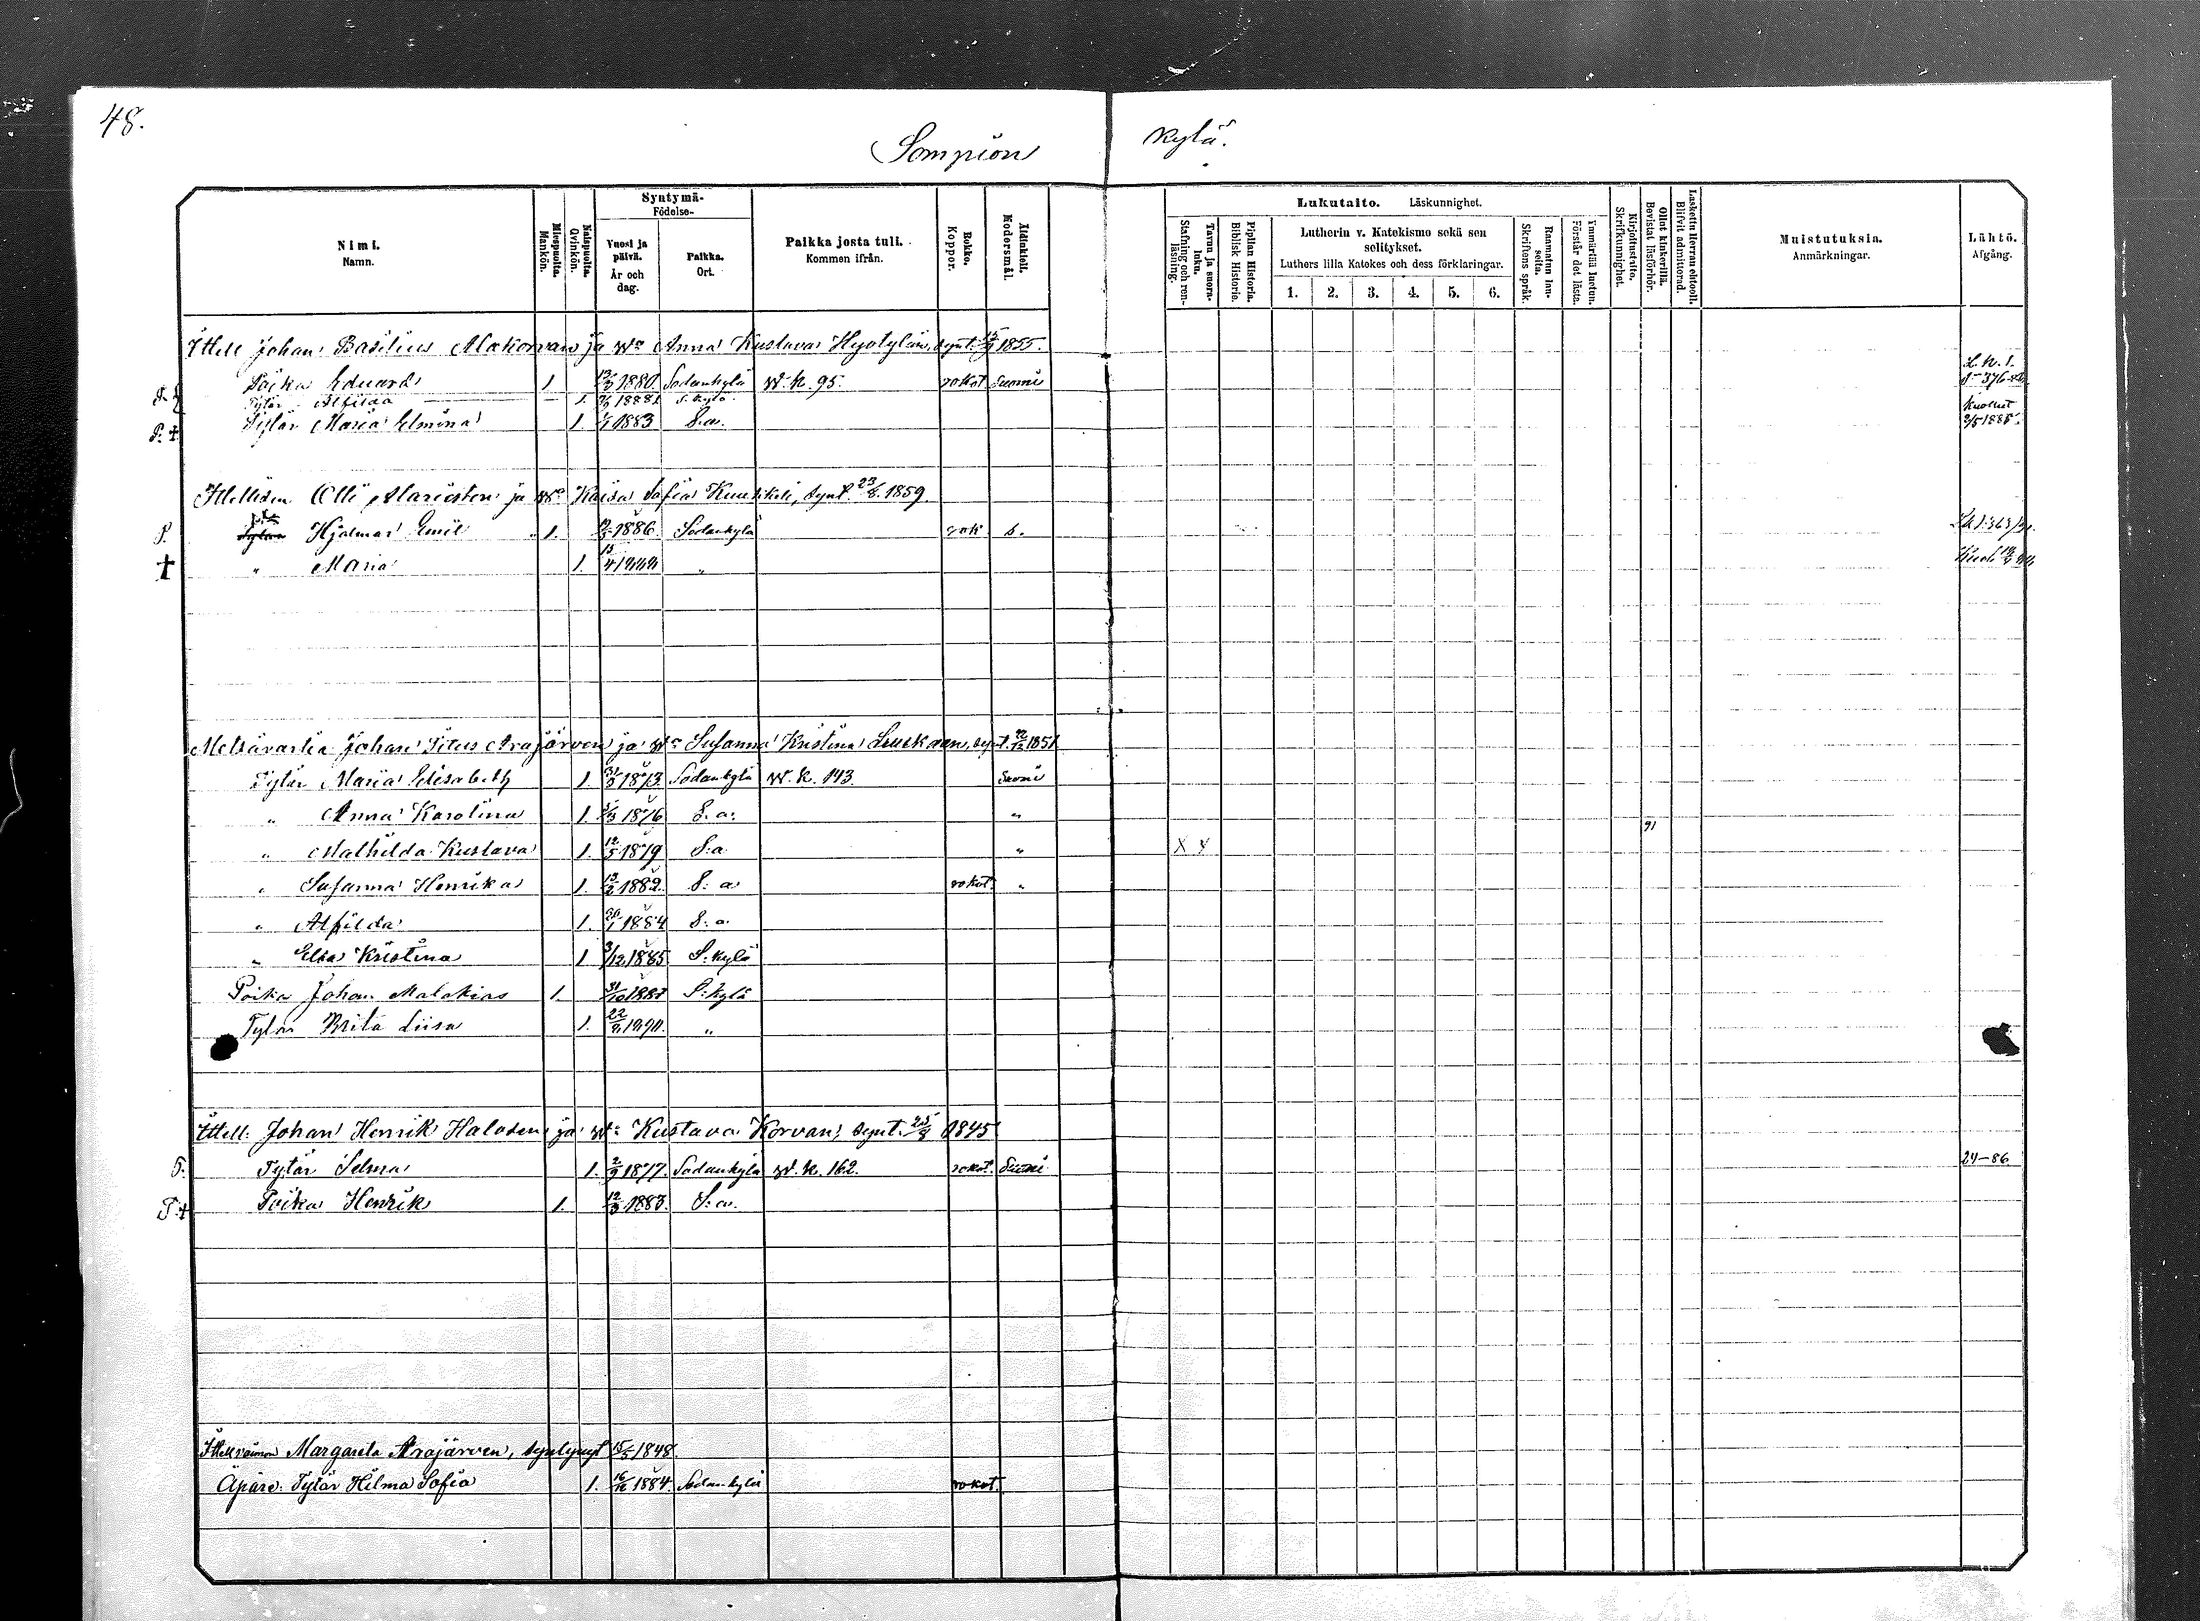 48.
Sompion kylä.
Nimi. Namn.
Miespuolia. Mankön.
Naispuolia. Qvinkön.
Syntymä- Födelse-
Vuosi ja päivä. År och dag.
Paikka. Ort.
Paikka josta tuli. Kommen ifrån.
Rokko. Koppor.
Äidinkieli. Modersmål.
Lukutaito. Läskunnighet.
Tavuu ja suora- luku. Stafning och ren- läsning.
Piplian Historia. Biblisk Historie.
Lutherin v. Katekismo sekä sen selitykset.
Luthers lilla Katekes och dess förklaringar.
1. 2. 3. 4. 5. 6.
Raamatun lau- seita. Skriftens språk.
Ymmärtää luetun. Förstår det lästa.
Kirjoitustaito. Skriffkunnighet.
Ollut kinkerillä. Bevistat läsförhör.
Laskettu Herran ehtooll. Blifvit admitterad.
Muistutuksia. Anmärkningar.
Lähtö. Afgång.
Johan Basilius Alakorvan ja wa Anna Kustava Hyötylän, synt. 1855.
Poika Eduard 1. 1880. Sodankylä W. K. 95. rokot. Suomi
Tytär Alfilda 1. 1881 S. kylä
Tytär Maria Elmina 1 1883 S:a. Kuollut 2/5 1885.
Itellisen Olli Mariosten ja wa Kaisa Sofia Kuusikeli, synt 23/8. 1859.
Hjalmar Emil 1. 1886. Sodankylä rok. s.
„ Maria 1. „
Metsävartia Johan Titus Arajärven ja wa Susanna Kristina synt. 1851
Tytär Maria Elisabeth 1. 31/3 1873. Sodankylä W. K. 143. Suomi
„ Anna Karolina 1. 1876 S. a. „
„ Mathilda Kustava 1. 12/5 1879 S:a „ X X 91
„ Susanna Henrika 1. 13/2 1882. S: a rokot. „
„ Alfilda 1. 1884 S: a.
„ Elsa Kristina 1 3/12 1885. S: kylä
Poika Johan Malakias 1. 31/10 S: kylä
Tytär Brita Liisa 1. 22/8 1890. „
Itell: Johan Henrik Halosen ja wa Kustava Korvan, synt. 25/8 1845
Tytär Selma 1. 2/9 1877. Sodankylä W. K. 162. rokot. Suomi 24–86.
Poika Henrik 1. 12/3 1883. S:a.
Margareta Arajärven, syntynyt 15/5 1848.
Äpärä: Tytär Hilma Sofia 1. 1884. Sodankylä rokot.